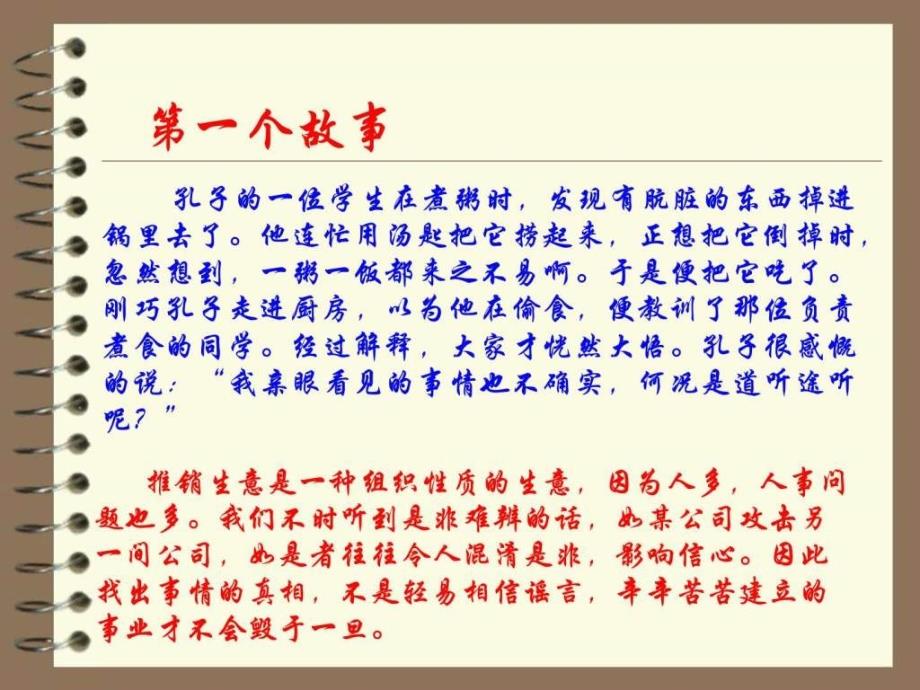 第一个故事
孔子的一位学生在煮粥时，发现有肮脏的东西掉进
锅里去了。他连忙用汤匙把它捞起来，正想把它倒掉时，
忽然想到，一粥一饭都来之不易啊。于是便把它吃了。
刚巧孔子走进厨房，以为他在偷食，便教训了那位负责
煮食的同学。经过解释，大家才恍然大悟。孔子很感慨
的说：“我亲眼看见的事情也不确实，何况是道听途听
呢？”
推销生意是一种组织性质的生意，因为人多，人事问
题也多。我们不时听到是非难辨的话，如某公司攻击另
一间公司，如是者往往令人混淆是非，影响信心。因此
找出事情的真相，不是轻易相信谣言，辛辛苦苦建立的
事业才不会毁于一旦。